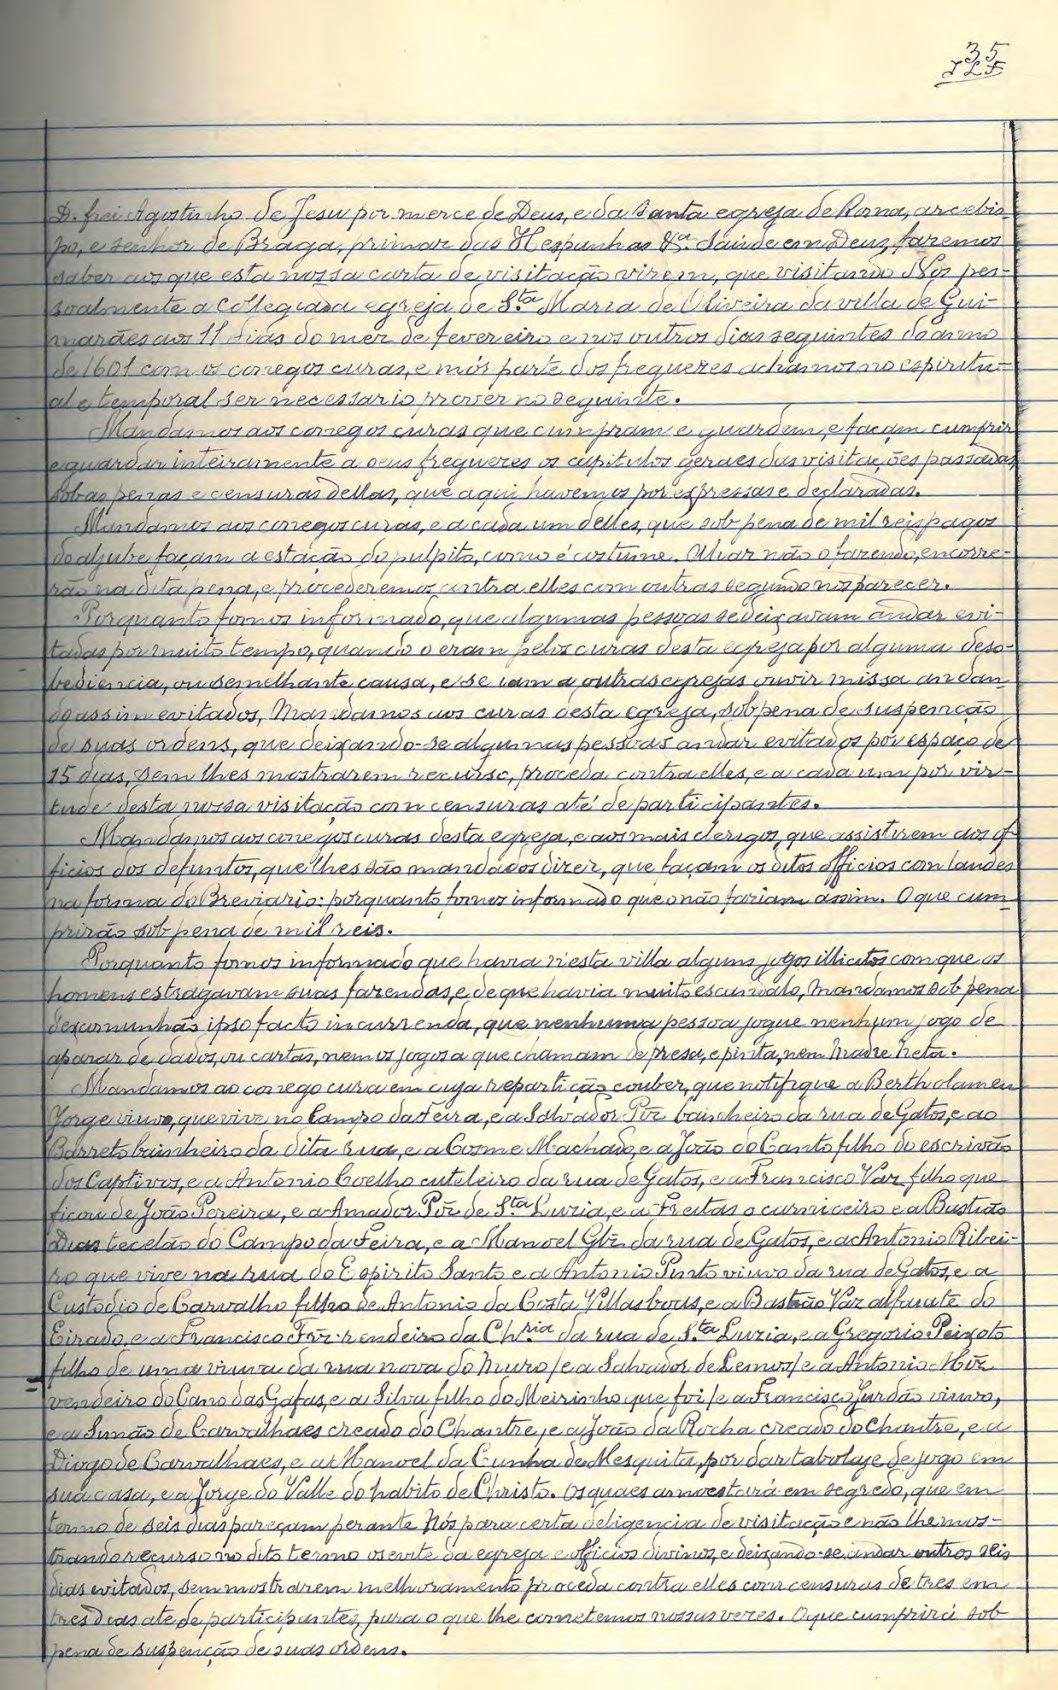 35
JLF
D. frei Agostinho de Jesu por merce de Deus, e da Santa egreja de Roma, arcebis-
po, e senhor de Braga, primaz das Hespanhas &ª. Saúde em Deus, fazemos
saber aos que esta nossa carta de visitação virem, que visitando Nós pes-
soalmente a collegiada egreja de Sta Maria de Oliveira da villa de Gui-
marães aos 11 dias do mez de fevereiro e nos outros dias seguintes do anno
de 1601 com os conegos curas, e mór parte dos freguezes achamos no espiritu-
al e temporal ser necessario prover no seguinte.
Mandamos aos conegos curas que cumpram e guardem, e façam cumprir
e guardar inteiramente a seus freguezes os capitulos geraes das visitações passadas,
sob as penas e censuras dellas, que aqui havemos por expressas e declaradas.
Mandamos aos conegos curas, e a cada um delles, que sob pena de mil reis pagos
do aljube façam a estação do pulpito, como é costume. Aliar não o fazendo, encorre-
rão na dita pena, e procederemos contra elles com outras segundo nos parecer.
Porquanto fomos informado, que algumas pessoas se deixavam andar evi-
tadas por muito tempo, quando o eram pelos curas desta egreja por alguma deso-
bediencia, ou semelhante causa, e se iam a outras egrejas ouvir missa andan-
do assim evitados, Mandamos aos curas desta egreja, sob pena de suspenção
de suas ordens, que deixando-se algumas pessoas andar evitados por espaço de
15 dias, sem lhes mostrarem recurso, proceda contra elles, e a cada um por vir-
tude desta nossa visitação com censuras até de participantes.
Mandamos aos conegos curas desta egreja, e aos mais clerigos, que assistirem aos of-
ficios dos defuntos, que lhes são mandados dizer, que façam os ditos officios com laudes
na forma do Breviario: porquanto fomos informado que o não faziam assim. O que cum-
prirão sob pena de mil reis.
Porquanto fomos informado que havia n'esta villa alguns jogos illicitos com que os
homens estragavam suas fazendas, e de que havia muito escandalo, mandamos sob pena
d'excomunhão ipso facto incurrenda, que nenhuma pessoa jogue nenhum jogo de
aparar de dados, ou cartas, nem os jogos a que chamam de presa, e pinta, nem Madre Neta.
Mandamos ao conego cura em cuja repartição couber, que notifique a Bertholameu
Jorge viuvo, que vive no Campo da Feira, e a Salvador Pirz bainheiro da rua de Gatos, e ao
Barreto bainheiro da dita rua, e a Cosme Machado, e a João do Canto filho do escrivão
dos Captivos, e a Antonio Coelho cuteleiro da rua de Gatos, e a Francisco Vaz filho que
ficou de João Pereira, e a Amador Pirz de Sta Luzia, e a Freitas o carniceiro e a Bastião
Dias tecelão do Campo da Feira, e a Manoel Glz da rua de Gatos, e a Antonio Ribei-
ro que vive na rua do Espirito Santo e a Antonio Pinto viuvo da rua de Gatos, e a
Custodio de Carvalho filho de Antonio da Costa Villasboas, e a Bastião Vaz alfaiate do
Eirado, e a Francisco Frz rendeiro da Chria da rua de Sta Luzia, e a Gregorio Peixoto
filho de uma viuva da rua nova do Muro / e a Salvador de Lemos / e a Antonio Miz
vendeiro do Cano das Gafas, e a Silva filho do Meirinho que foi / e a Francisco Jurdão viuvo,
e a Simão de Carvalhaes creado do Chantre, e a João da Rocha creado do Chantre, e a
Diogo de Carvalhaes, e a Manoel da Cunha de Mesquita, por dar tabolaje de jogo em
sua casa, e a Jorge do Valle do habito de Christo. Os quaes amoestará em segredo, que em
termo de seis dias pareçam perante Nós para certa deligencia de visitação e não lhe mos-
trando recurso no dito termo os evite da egreja e officios divinos, e deixando-se andar outros seis
dias evitados, sem mostrarem melhoramento proceda contra elles com censuras de tres em
tres dias ate de participantes, para o que lhe cometemos nossas vezes. O que cumprirá sob
pena de suspenção de suas ordens.